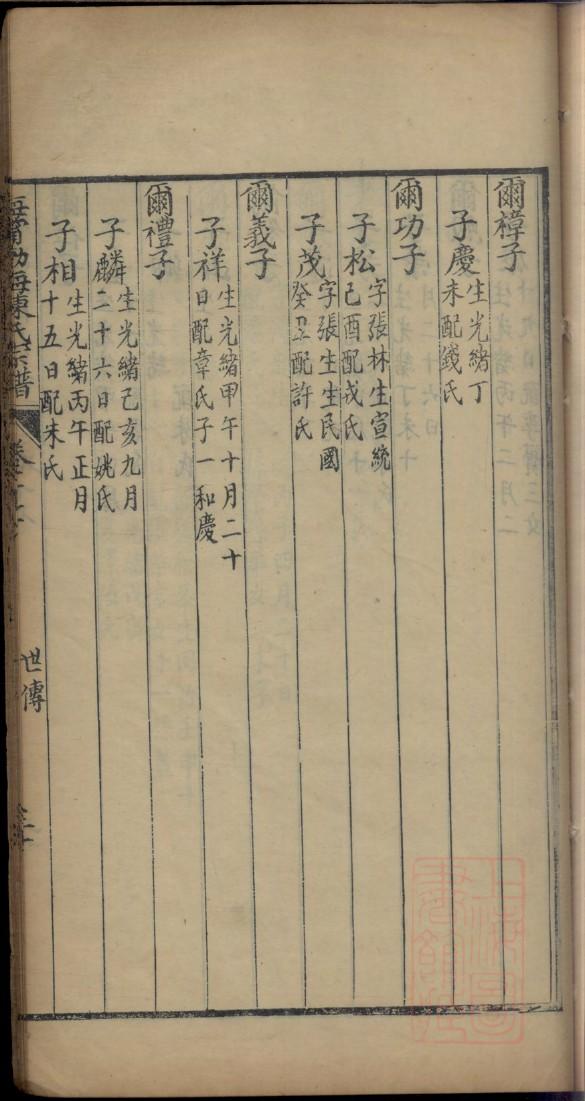 爾樟子
子慶生光緒丁
未配錢氏
爾功子
子松字張林生宣統
己酉配戎氏
子茂字張生生民國
癸丑配許氏
爾義子
子祥生光緒甲午十月二十
日配章氏子一和慶
爾禮子
子麟生光緒己亥九月
二十六日配姚氏
子相生光緒丙午正月
十五日配朱氏
海寧渤海陳氏宗譜
世傳
上海圖
書館藏